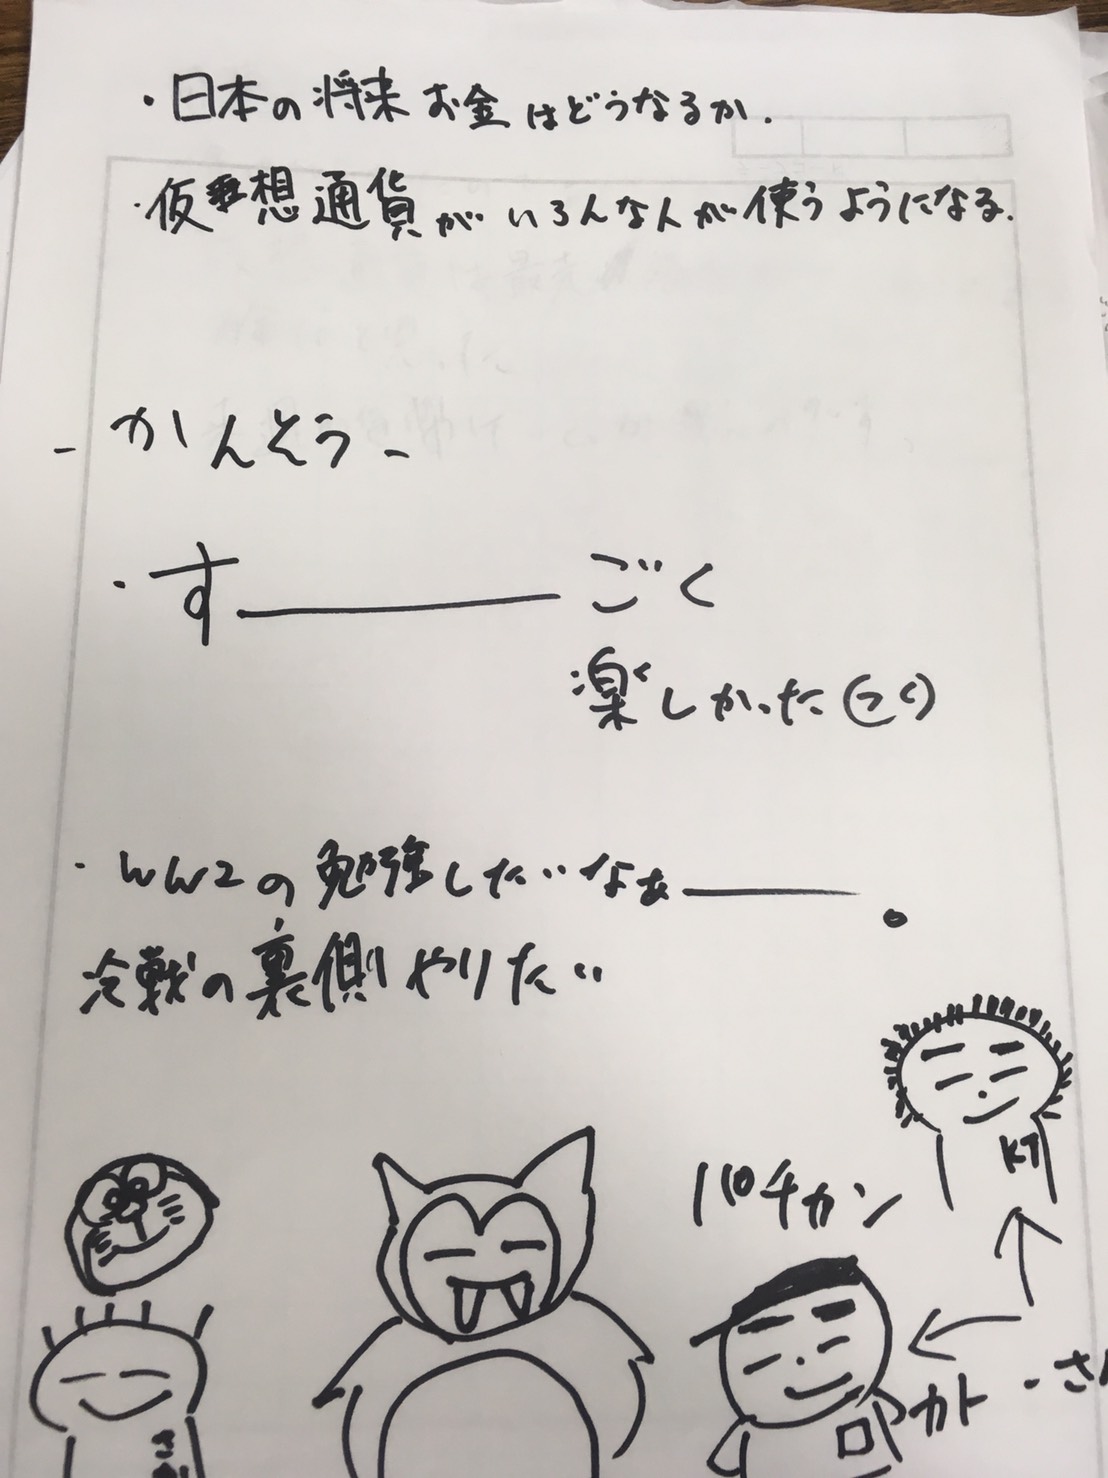 ・日本の将来お金はどうなるか.
・仮想通貨がいろんな人が使うようになる.
- かんそう -
・す――――ごく
楽しかった
・WW2の勉強したいなぁ――。
冷戦の裏側やりたい
KT
パチカン
カトーさん